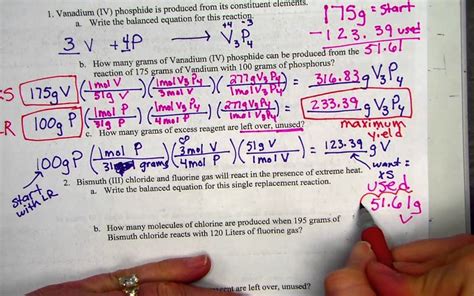 1. Vanadium (IV) phosphide is produced from its constituent elements.
175g = start
a. Write the balanced equation for this reaction.
+4 -3
- 123.39 used
3 V + 4P → V₃P₄
51.61
b. How many grams of Vanadium (IV) phosphide can be produced from the
reaction of 175 grams of Vandium with 100 grams of phosphorus?
XS 175g V (1mol V / 51g V)(1mol V₃P₄ / 3mol V)(277g V₃P₄ / 1mol V₃P₄) = 316.83g V₃P₄
LR 100g P (1mol P / 31g P)(1mol V₃P₄ / 4mol P)(277g V₃P₄ / 1mol V₃P₄) = 233.39g V₃P₄
maximum
yield
c. How many grams of excess reagent are left over, unused?
100g P (1mol P / 31 grams)(3mol V / 4mol P)(51g V / 1mol V) = 123.39g V
start
with LR
want =
xs
used
2. Bismuth (III) chloride and fluorine gas will react in the presence of extreme heat.
a. Write the balanced equation for this single replacement reaction.
51.61g
V
b. How many molecules of chlorine are produced when 195 grams of
Bismuth chloride reacts with 120 Liters of fluorine gas?
are left over, unused?